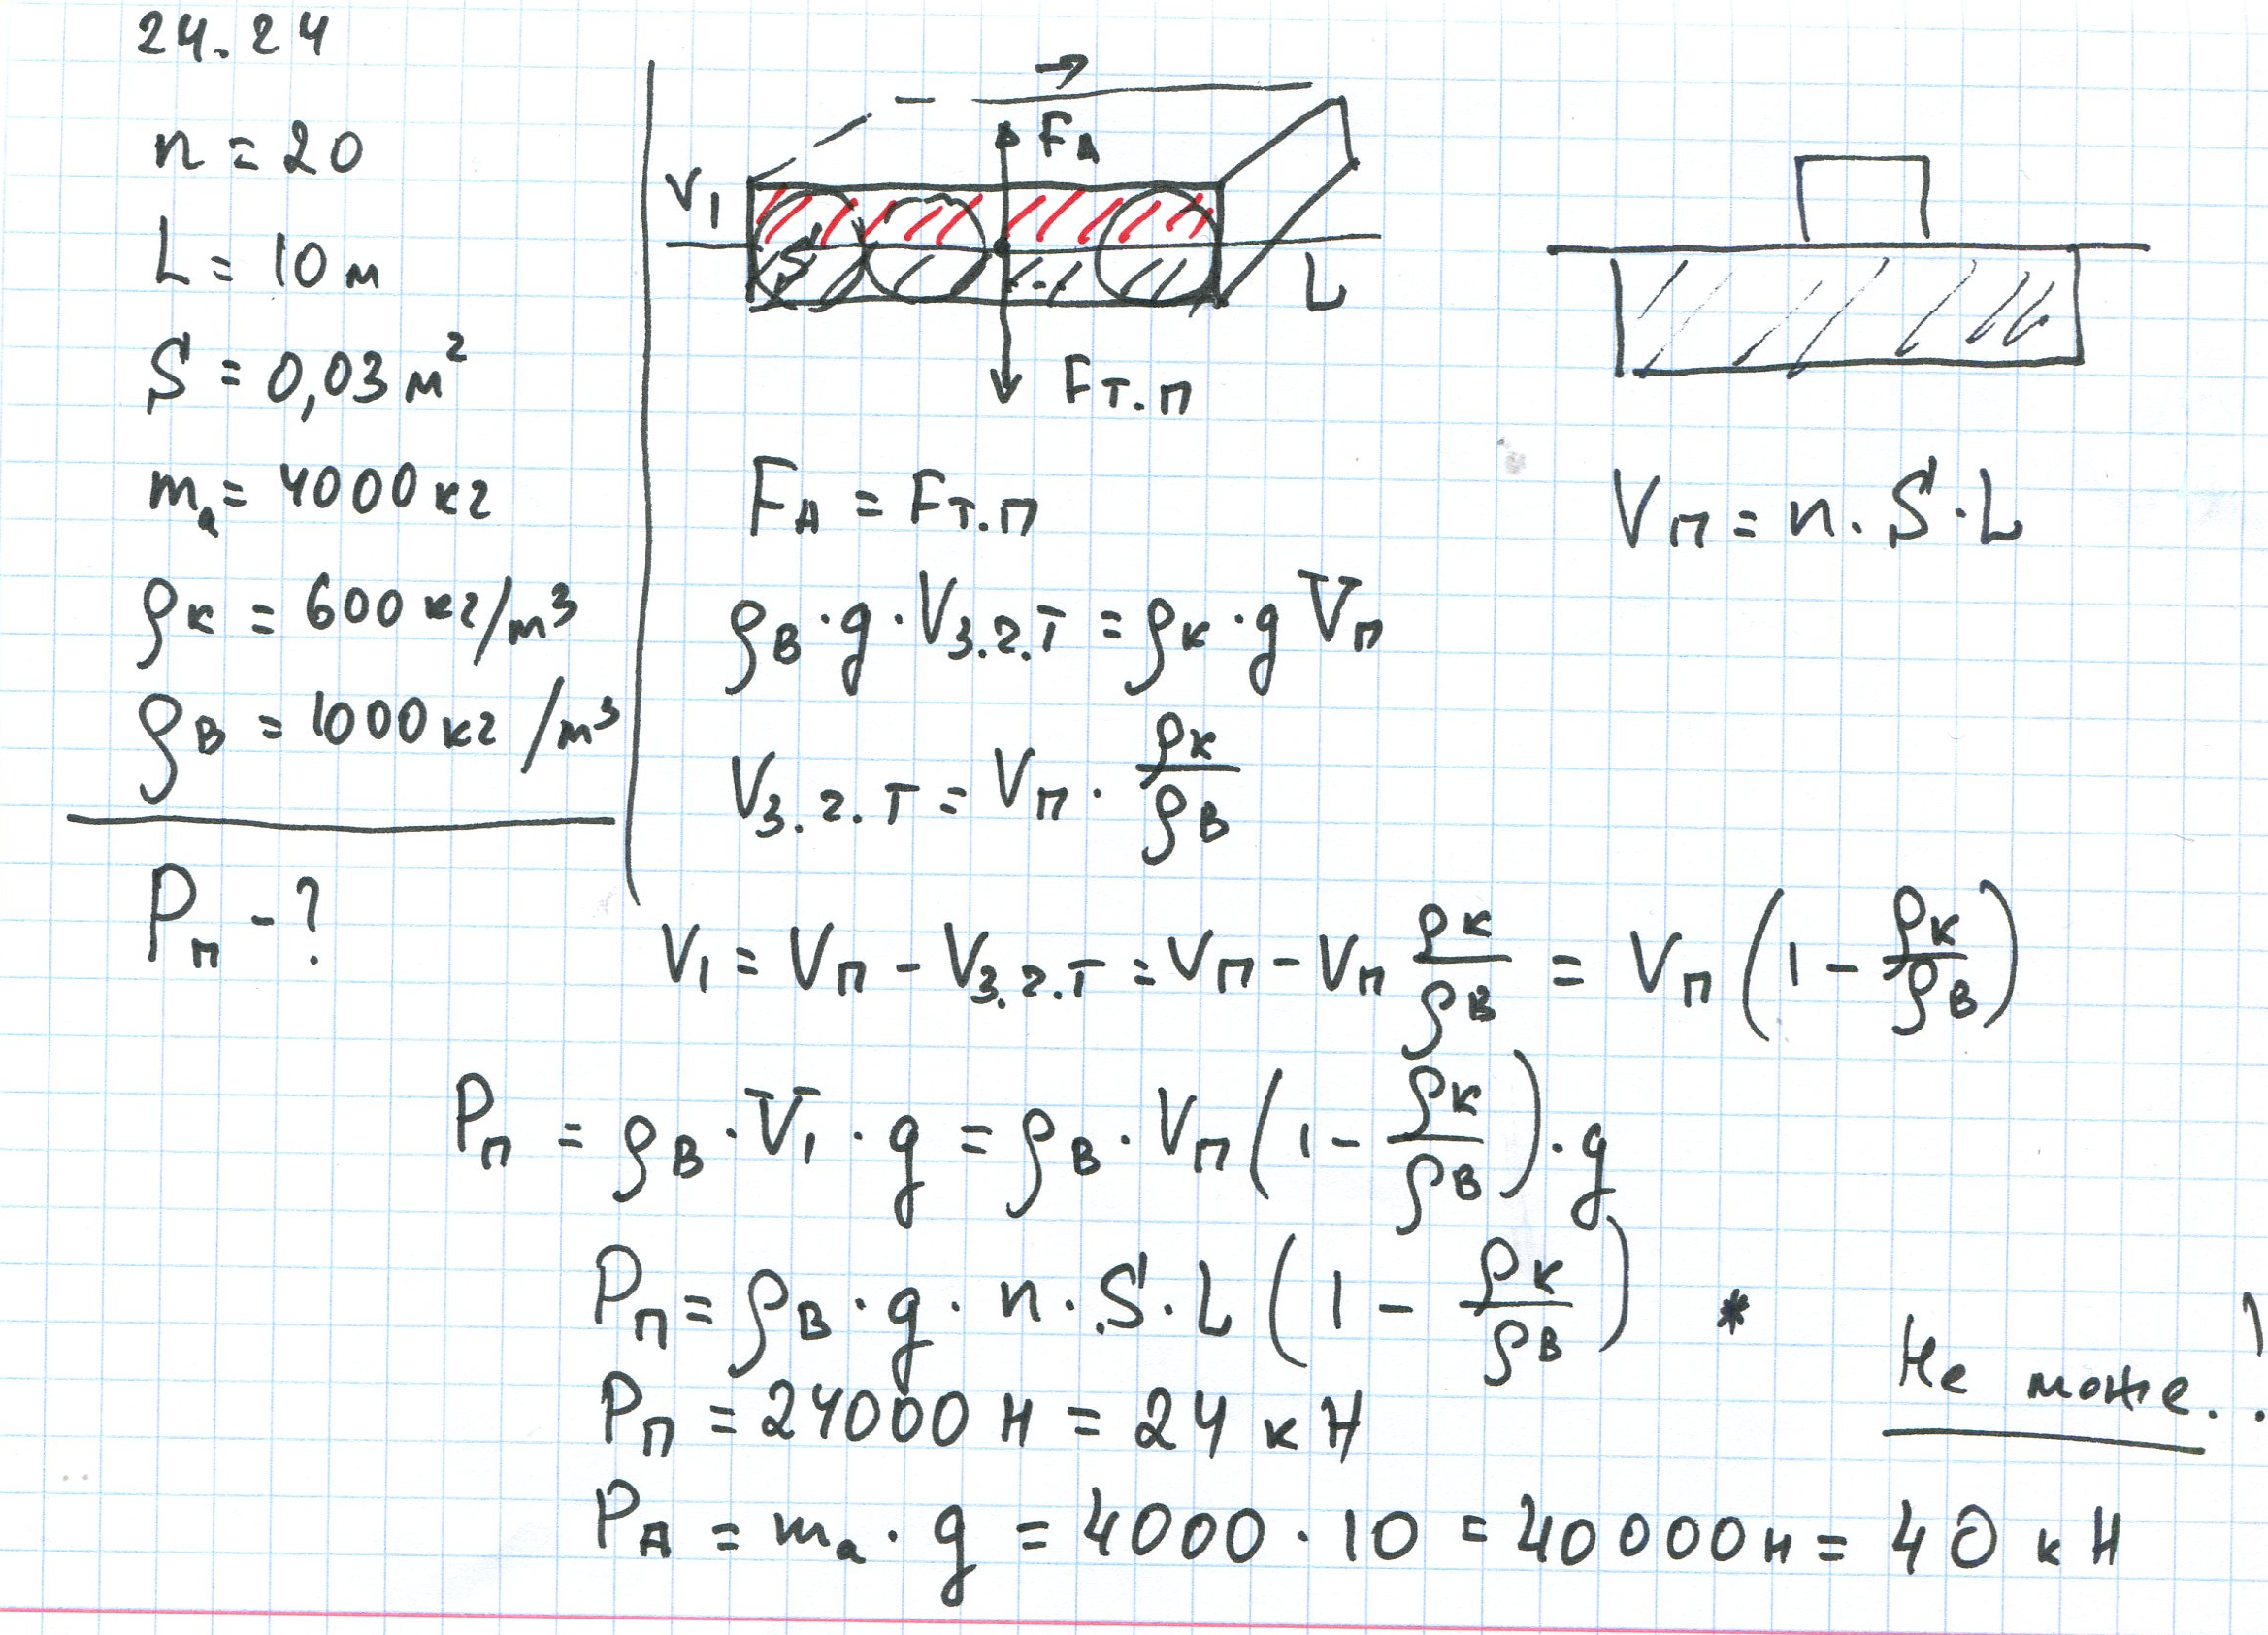 24.24
n = 20
L = 10 м
S = 0,03 м²
mₐ = 4000 кг
ρк = 600 кг/м³
ρв = 1000 кг/м³
Pп - ?
V₁
S
→
Fₐ
L
Fт.п
Fₐ = Fт.п
ρв · g · Vз.г.т = ρк · g Vп
Vз.г.т = Vп · ρк/ρв
Vп = n · S · L
V₁ = Vп - Vз.г.т = Vп - Vп ρк/ρв = Vп (1 - ρк/ρв)
Pп = ρв · V₁ · g = ρв · Vп (1 - ρк/ρв) · g
Pп = ρв · g · n · S · L (1 - ρк/ρв) *
Не може..!
Pп = 24000 Н = 24 кН
Pₐ = mₐ · g = 4000 · 10 = 40000 н = 40 кН